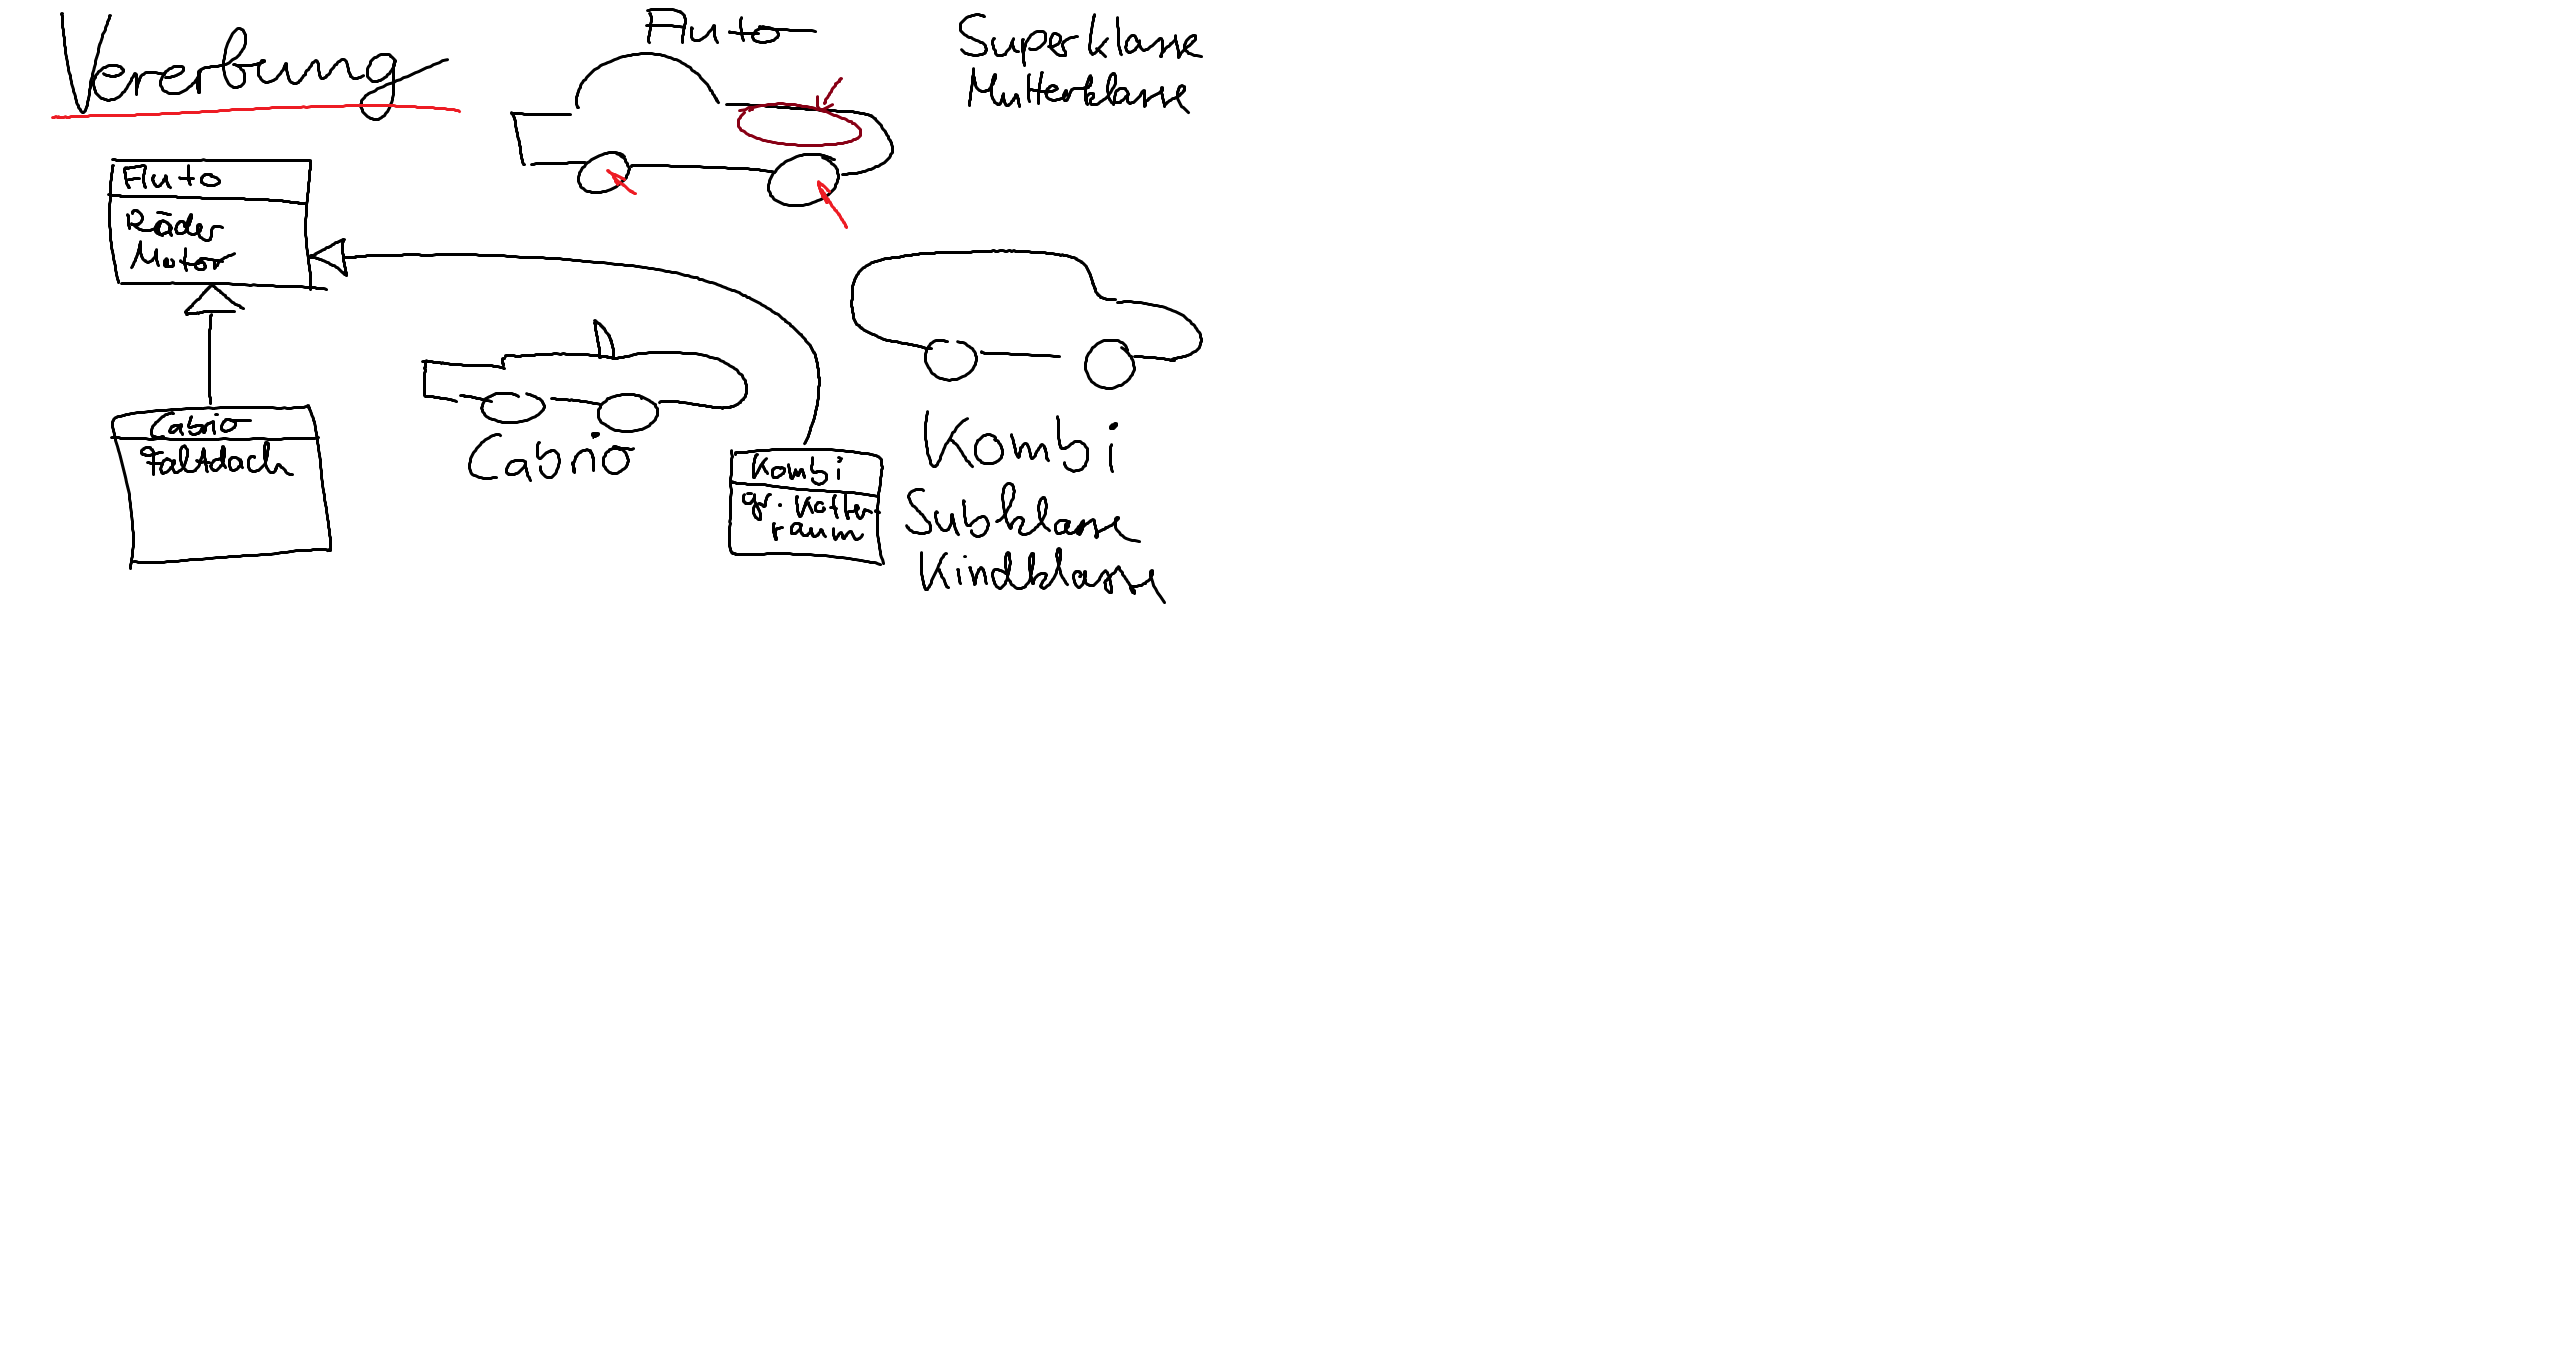 Vererbung
Auto
Superklasse
Mutterklasse
Auto
Räder
Motor
Cabrio
Faltdach
Cabrio
Kombi
gr. Koffer-
raum
Kombi
Subklasse
Kindklasse